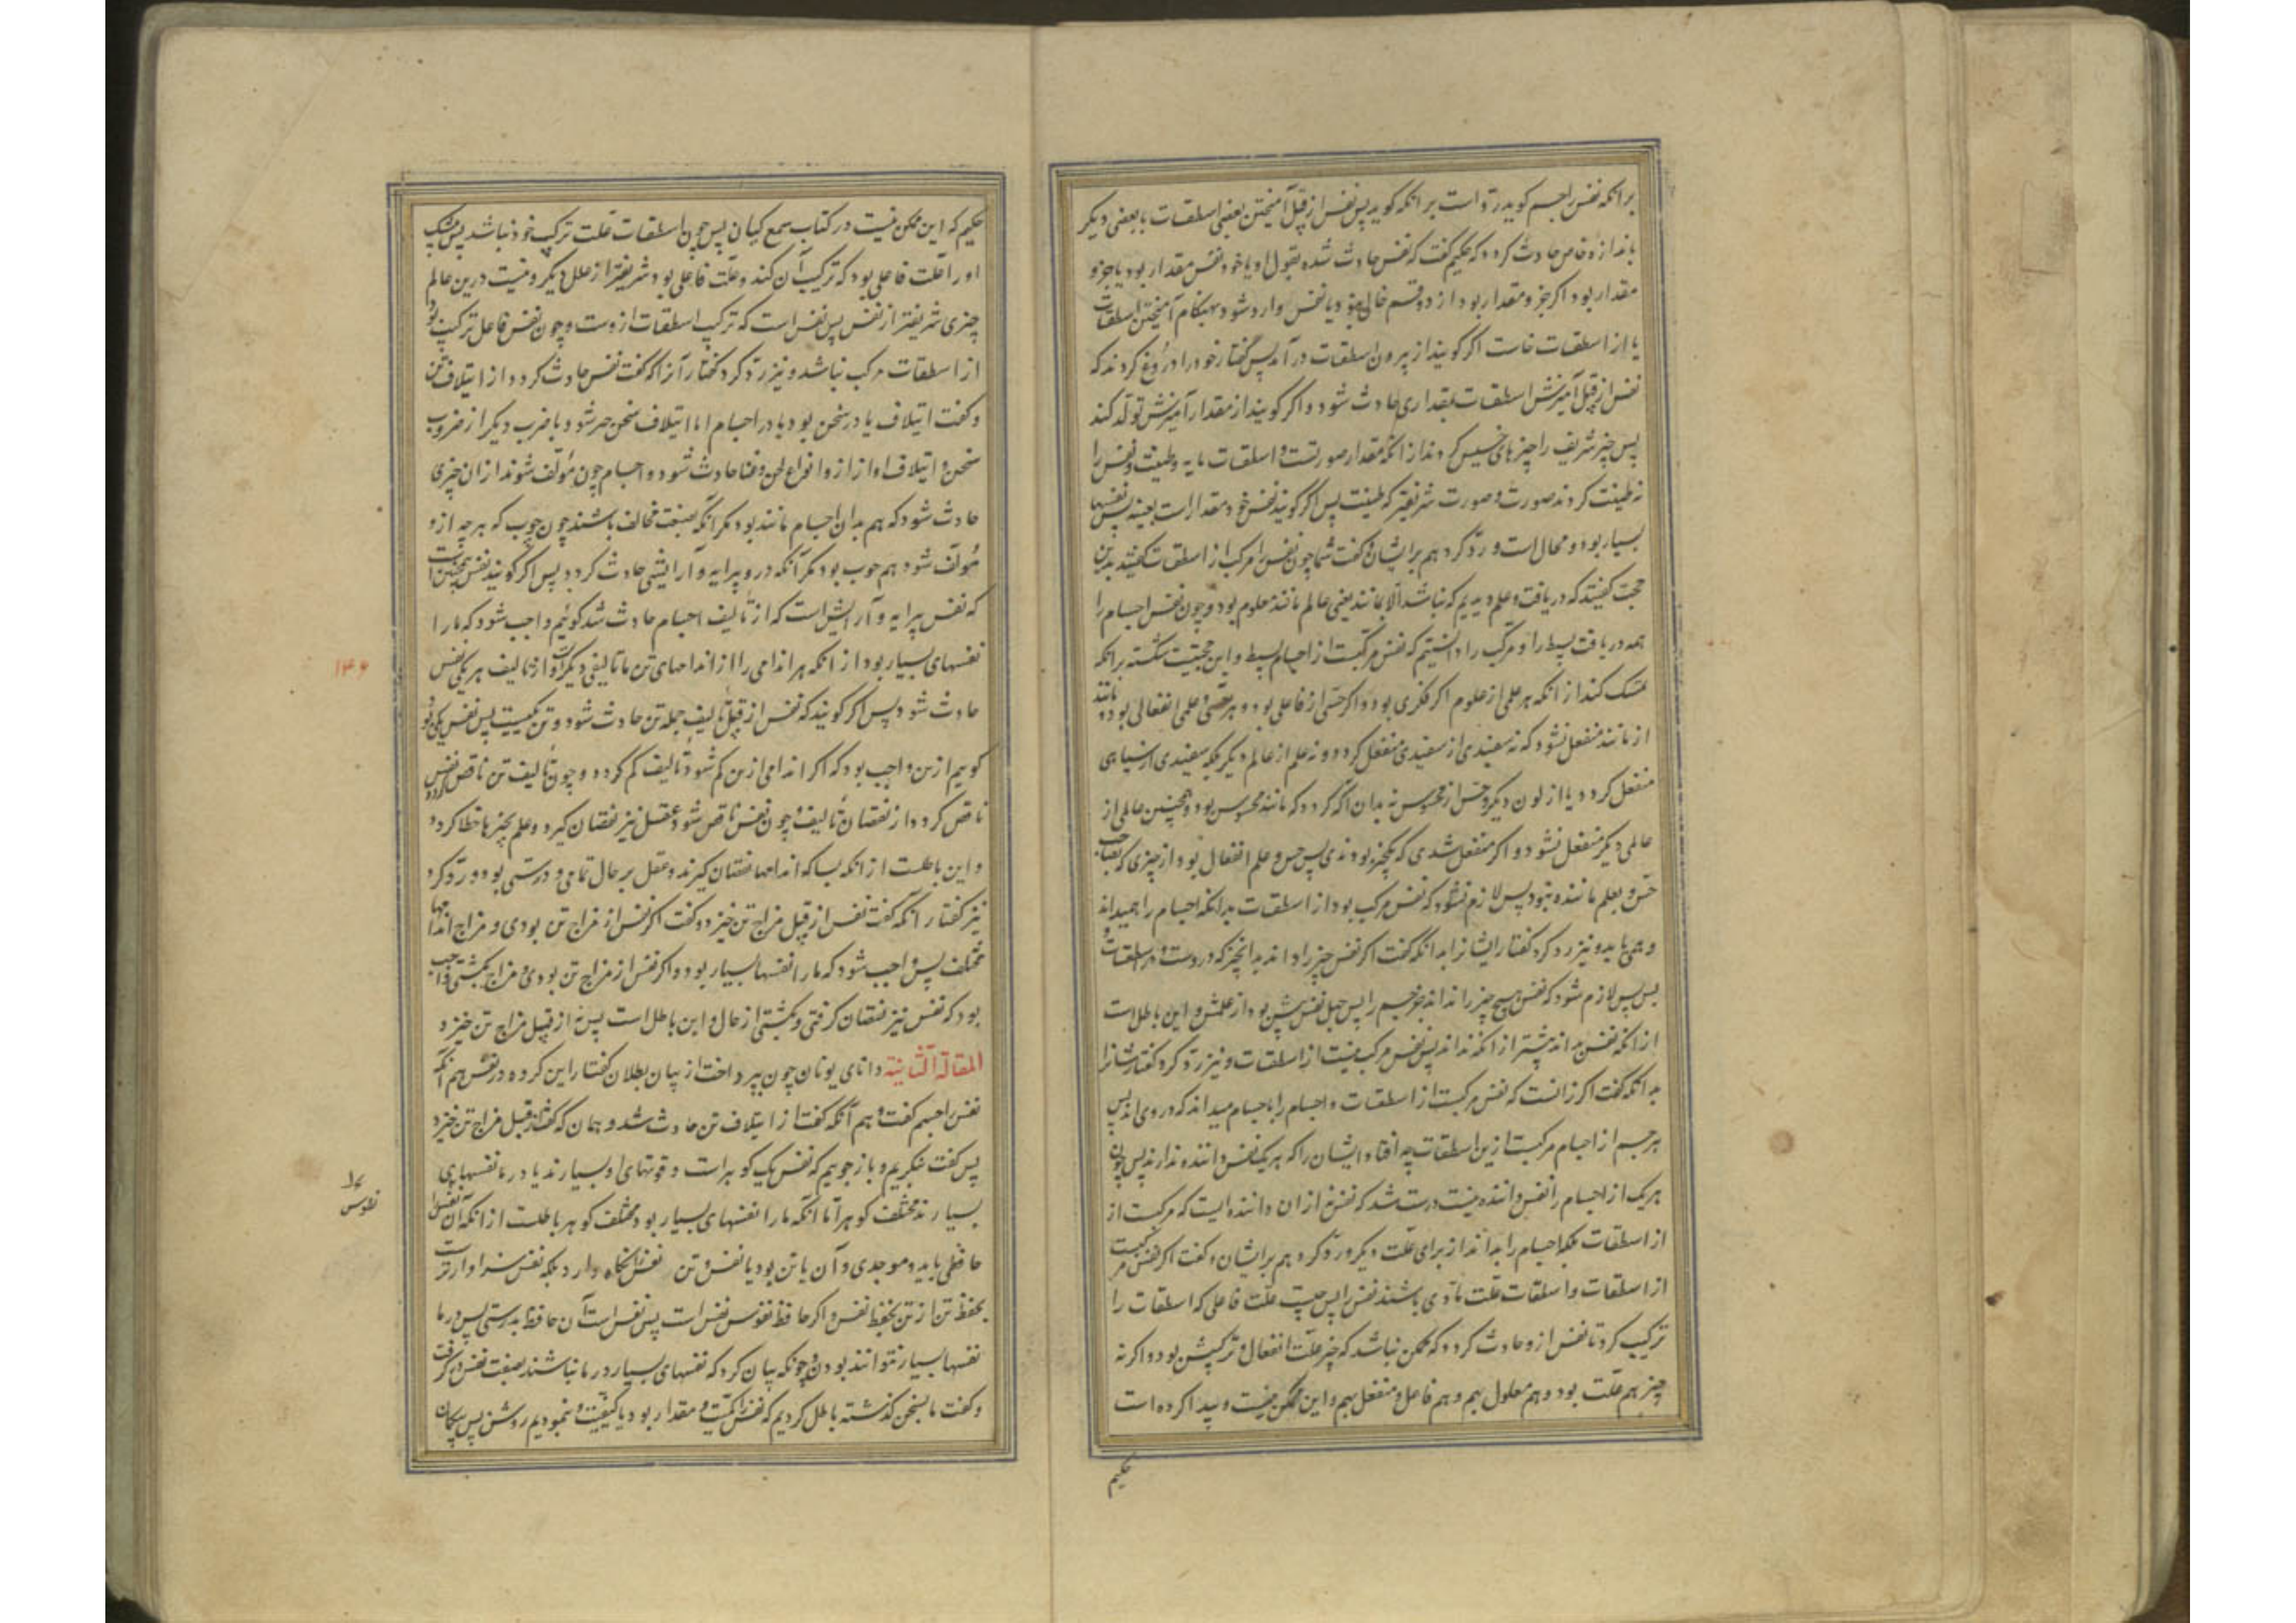 بر انکه نفس را جسم کوید رد است بر انکه کوید پس نفس از قبل آمیختن بعضی اسطقسات با بعضی دیکر
باندازهٔ خاص حادث کردد که حکیم کفت که نفس حادث شده بقول او یا خود نفس مقدار بود یا جزو
مقدار بود اکر جزو مقدار بود از دو قسم خالی نبود یا نفس وارد شود بهنکام آمیختن اسطقسات
یا از اسطقسات خاست اکر کویند از بیرون اسطقسات در آمد پس کفتار خود را دروغ کردند که
نفس از قبل آمیزش اسطقسات بمقداری حادث شود و اکر کویند از مقدار آمیزش تولد کند
پس چیز شریف را چیزهای خسیس کردند از انکه مقدار صورتست و اسطقسات مایه و طینت و نفس را
نه طینت کردند صورت و صورت شریفتر که طینت پس اکر کویند نفس خود مقدار است بعینه پس نفسها
بسیار بود و محال است و رد کرد هم بر ایشان و کفت شما چون نفس را مرکب از اسطقسات کفتید بدین
حجت کفتید که دریافت و علم دیدیم که نباشد الا بمانند یعنی عالم مانند معلوم بود و چون نفس اجسام را
همه دریافت بسط را و مرکب را دانستیم که نفس مرکبست از اجسام بسیط و این حجتیست شکسته بر انکه
تمسک کند از انکه هر علمی از علوم اکر فکری بود و اکر حسی از فاعلی بود و هر حسی و علمی انفعالی بود و مانند
از مانند منفعل نشود که نه سفیدی از سفیدی منفعل کردد و نه علم از عالم دیکر بلکه سفیدی از سیاهی
منفعل کردد یا از لون دیکر و حس از محسوس نه بدان اکه کردد که مانند محسوس بود و همچنین عالمی از
عالمی دیکر منفعل نشود و اکر منفعل شدی که یکچیز بودندی پس حس و علم انفعال بود از چیزی که بصاحب
حس و بعلم ماننده نبود پس لازم نشود که نفس مرکب بود از اسطقسات بدانکه اجسام را همیداند
و همی یابد و نیز رد کرد کفتار ایشانرا بدانکه کفت اکر نفس چیز را داند بدانچیز که دروست و در اسطقسات
بس پس لازم شود که نفس هیچ چیز را نداند جز جسم را پس جهل نفس بیش بود از علمش و این باطلست
از انکه نفس بداند بیشتر از انکه نداند پس نفس مرکب نیست از اسطقسات و نیز رد کرد کفتارشانرا
بدانکه کفت اکر زانست که نفس مرکبست از اسطقسات و اجسام را باجسام میداند که در وی اند پس
هر جسم از اجسام مرکبست ازین اسطقسات چه افتاد ایشان را که هر یک نفس داننده ندارند پس چون
هر یک از اجسام را نفس داننده نیست درست شد که نفس نه از ان داننده ایست که مرکبست از
از اسطقسات بلکه اجسام را بداند از برای علت دیکر و رد کرد هم بر ایشان و کفت اکر نفس مرکبست
از اسطقسات و اسطقسات علت مادی باشند نفس را پس چیست علت فاعلی که اسطقسات را
ترکیب کرد تا نفس ازو حادث کردد که ممکن نباشد که چیز علت انفعال و ترکیبش بود و اکر نه
چیز هم علت بود و هم معلول بهم و هم فاعل و منفعل بهم و این ممکن نیست و پیدا کرده است
حکیم
حکیم که این ممکن نیست در کتاب سمع کیان پس چون اسطقسات علت ترکیب خود نباشد پس بیشک
او را علت فاعلی بود که ترکیب آن کند و علت فاعلی بود شریفتر از علل دیکر و نیست درین عالم
چیزی شریفتر از نفس پس نفس است که ترکیب اسطقسات ازوست و چون نفس فاعل ترکیب بود
از اسطقسات مرکب نباشد و نیز رد کرد کفتار آنرا که کفت نفس حادث کردد از ایتلاف تن
و کفت ایتلاف یا در سخن بود یا در اجسام اما ایتلاف سخن جز شود یا ضرب دیکر از ضروب
سخن و ایتلاف اواز ازو انواع لحن و غنا حادث شود و اجسام چون مؤلف شوند ازان چیزی
حادث شود که هم بدان اجسام مانند بود مکر آنکه بصنعت مخالف باشند چون چوب که هر چه ازو
مؤلف شود هم چوب بود مکر آنکه درو پیرایه و آرایشی حادث کردد پس اکر کویند نفس همچنین است
که نفس پیرایه و آرایش است که از تألیف اجسام حادث شد کوئیم واجب شود که ما را
نفسهای بسیار بود از انکه هر اندامی را از اندامهای تن ما تالیفی دیکر است و از تالیف هر یکی نفس
حادث شود پس اکر کویند که نفس از قبل تألیف جمله تن حادث شود و تن یکیست پس نفس یکی بود
کوییم ازین واجب بود که اکر اندامی از تن کم شود تألیف کم کردد و چون تألیف تن ناقص کردد نفس
ناقص کردد از نقصان تألیف و چون نفس ناقص شود عقل نیز نقصان کیرد و علم بچیزها خطا کردد
و این باطلست از انکه بسا که اندامها نقصان کیرند و عقل بر حال تمامی و درستی بود و رد کرد
نیز کفتار آنکه کفت نفس از قبل مزاج تن خیزد و کفت اکر نفس از مزاج تن بودی و مزاج اندامها
مختلف پس واجب شود که ما را نفسها بسیار بود و اکر نفس از مزاج تن بودی و مزاج بکشتی واجب
بود که نفس نیز نقصان کرفتی و بکشتی از حال و این باطل است پس نه از قبل مزاج تن خیزد
المقالة الثانیة دانای یونان چون بپرداخت از بیان بطلان کفتار این کروه در نفس هم آنکه
نفس را جسم کفت و هم آنکه کفت از ایتلاف تن حادث شد و همان که کفت از قبل مزاج تن خیزد
پس کفت بنکریم و باز جوییم که نفس یک کوهر است و قوتهای او بسیارند یا در ما نفسهای
بسیارند مختلف کوهر اما آنکه ما را نفسهای بسیار بود مختلف کوهر باطلست از انکه آن نفس را
حافظی باید و موجدی و آن یا تن بود یا نفس و تن نفس را نکاه دارد بلکه نفس سزاوارترست
بحفظ تن از تن بحفظ نفس و اکر حافظ نفوس نفس است پس نفس است آن حافظ بدرستی پس در ما
نفسها بسیار نتوانند بودن و چونکه بیان کرد که نفسهای بسیار در ما نباشند بصفت نفس در کرفت
و کفت ما بسخن کذشته باطل کردیم که نفس را کمیت و مقدار بود یا کیفیت و نمودیم روشن پس بیکمان
۱۴۶
نفوس